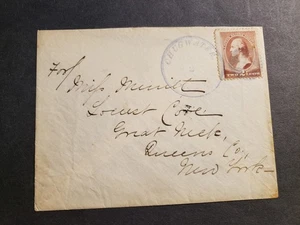 For/
Miss Merritt
Locust Cove
Great Neck,
Queens Co,
New York
TWO CENTS